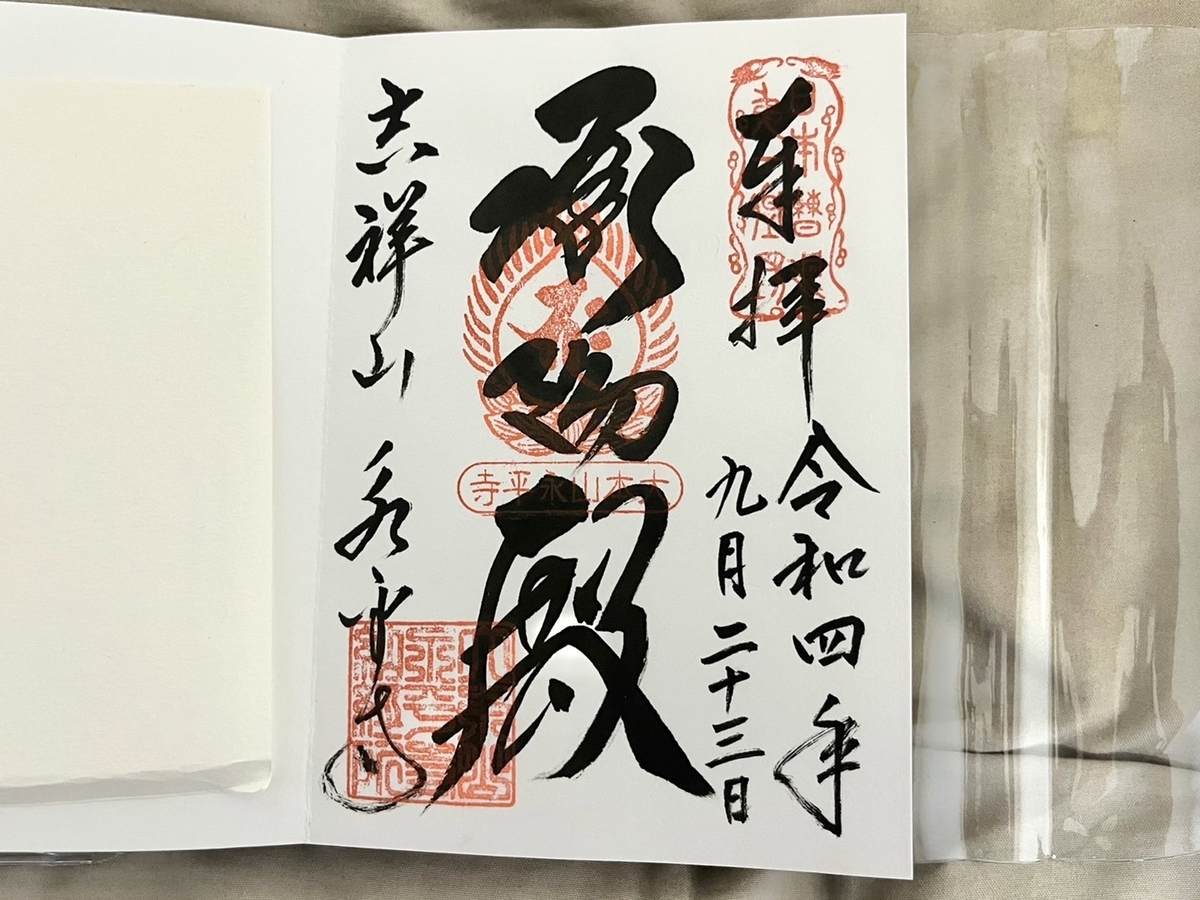 奉拝
令和四年
九月二十三日
承陽殿
大本山永平寺
吉祥山
永平寺